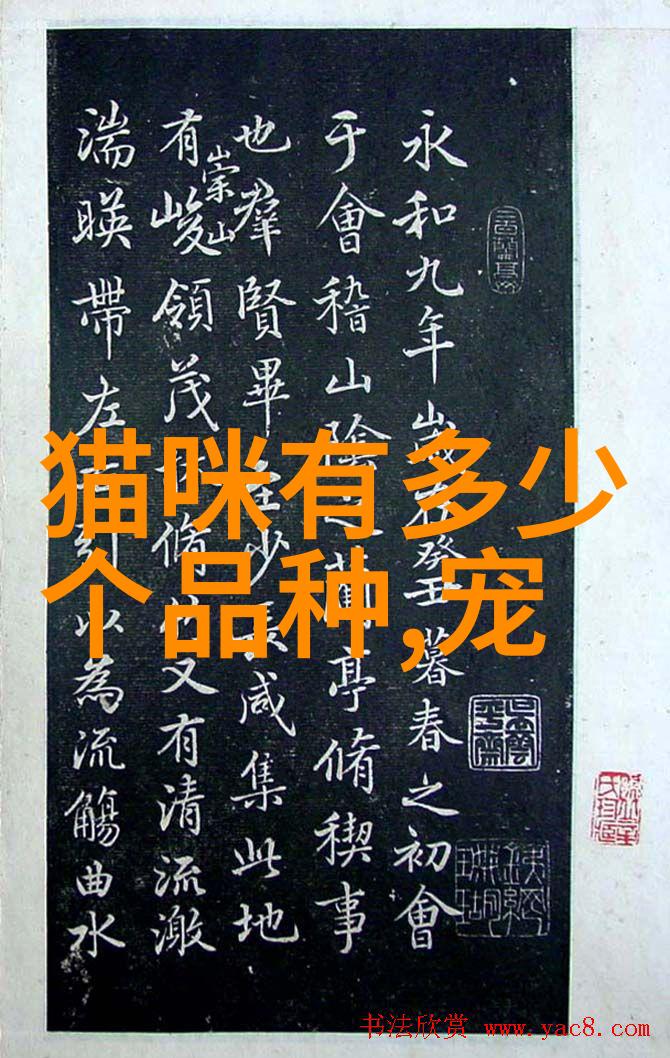 永和九年歲在癸丑暮春之初會
于會稽山陰之蘭亭脩稧事
也羣賢畢至少長咸集此地
有崇山峻領茂林脩竹又有清流激
湍暎帶左引以為流觴曲水
猫咪有多少
个品种,宠
书法欣赏 www.yac8.com